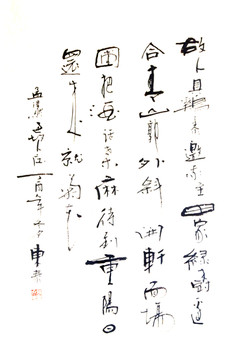 故人具雞黍邀我至田家綠樹村邊
合青山郭外斜開軒面場
圃把酒話桑麻待到重陽日
還來就菊花
孟浩然